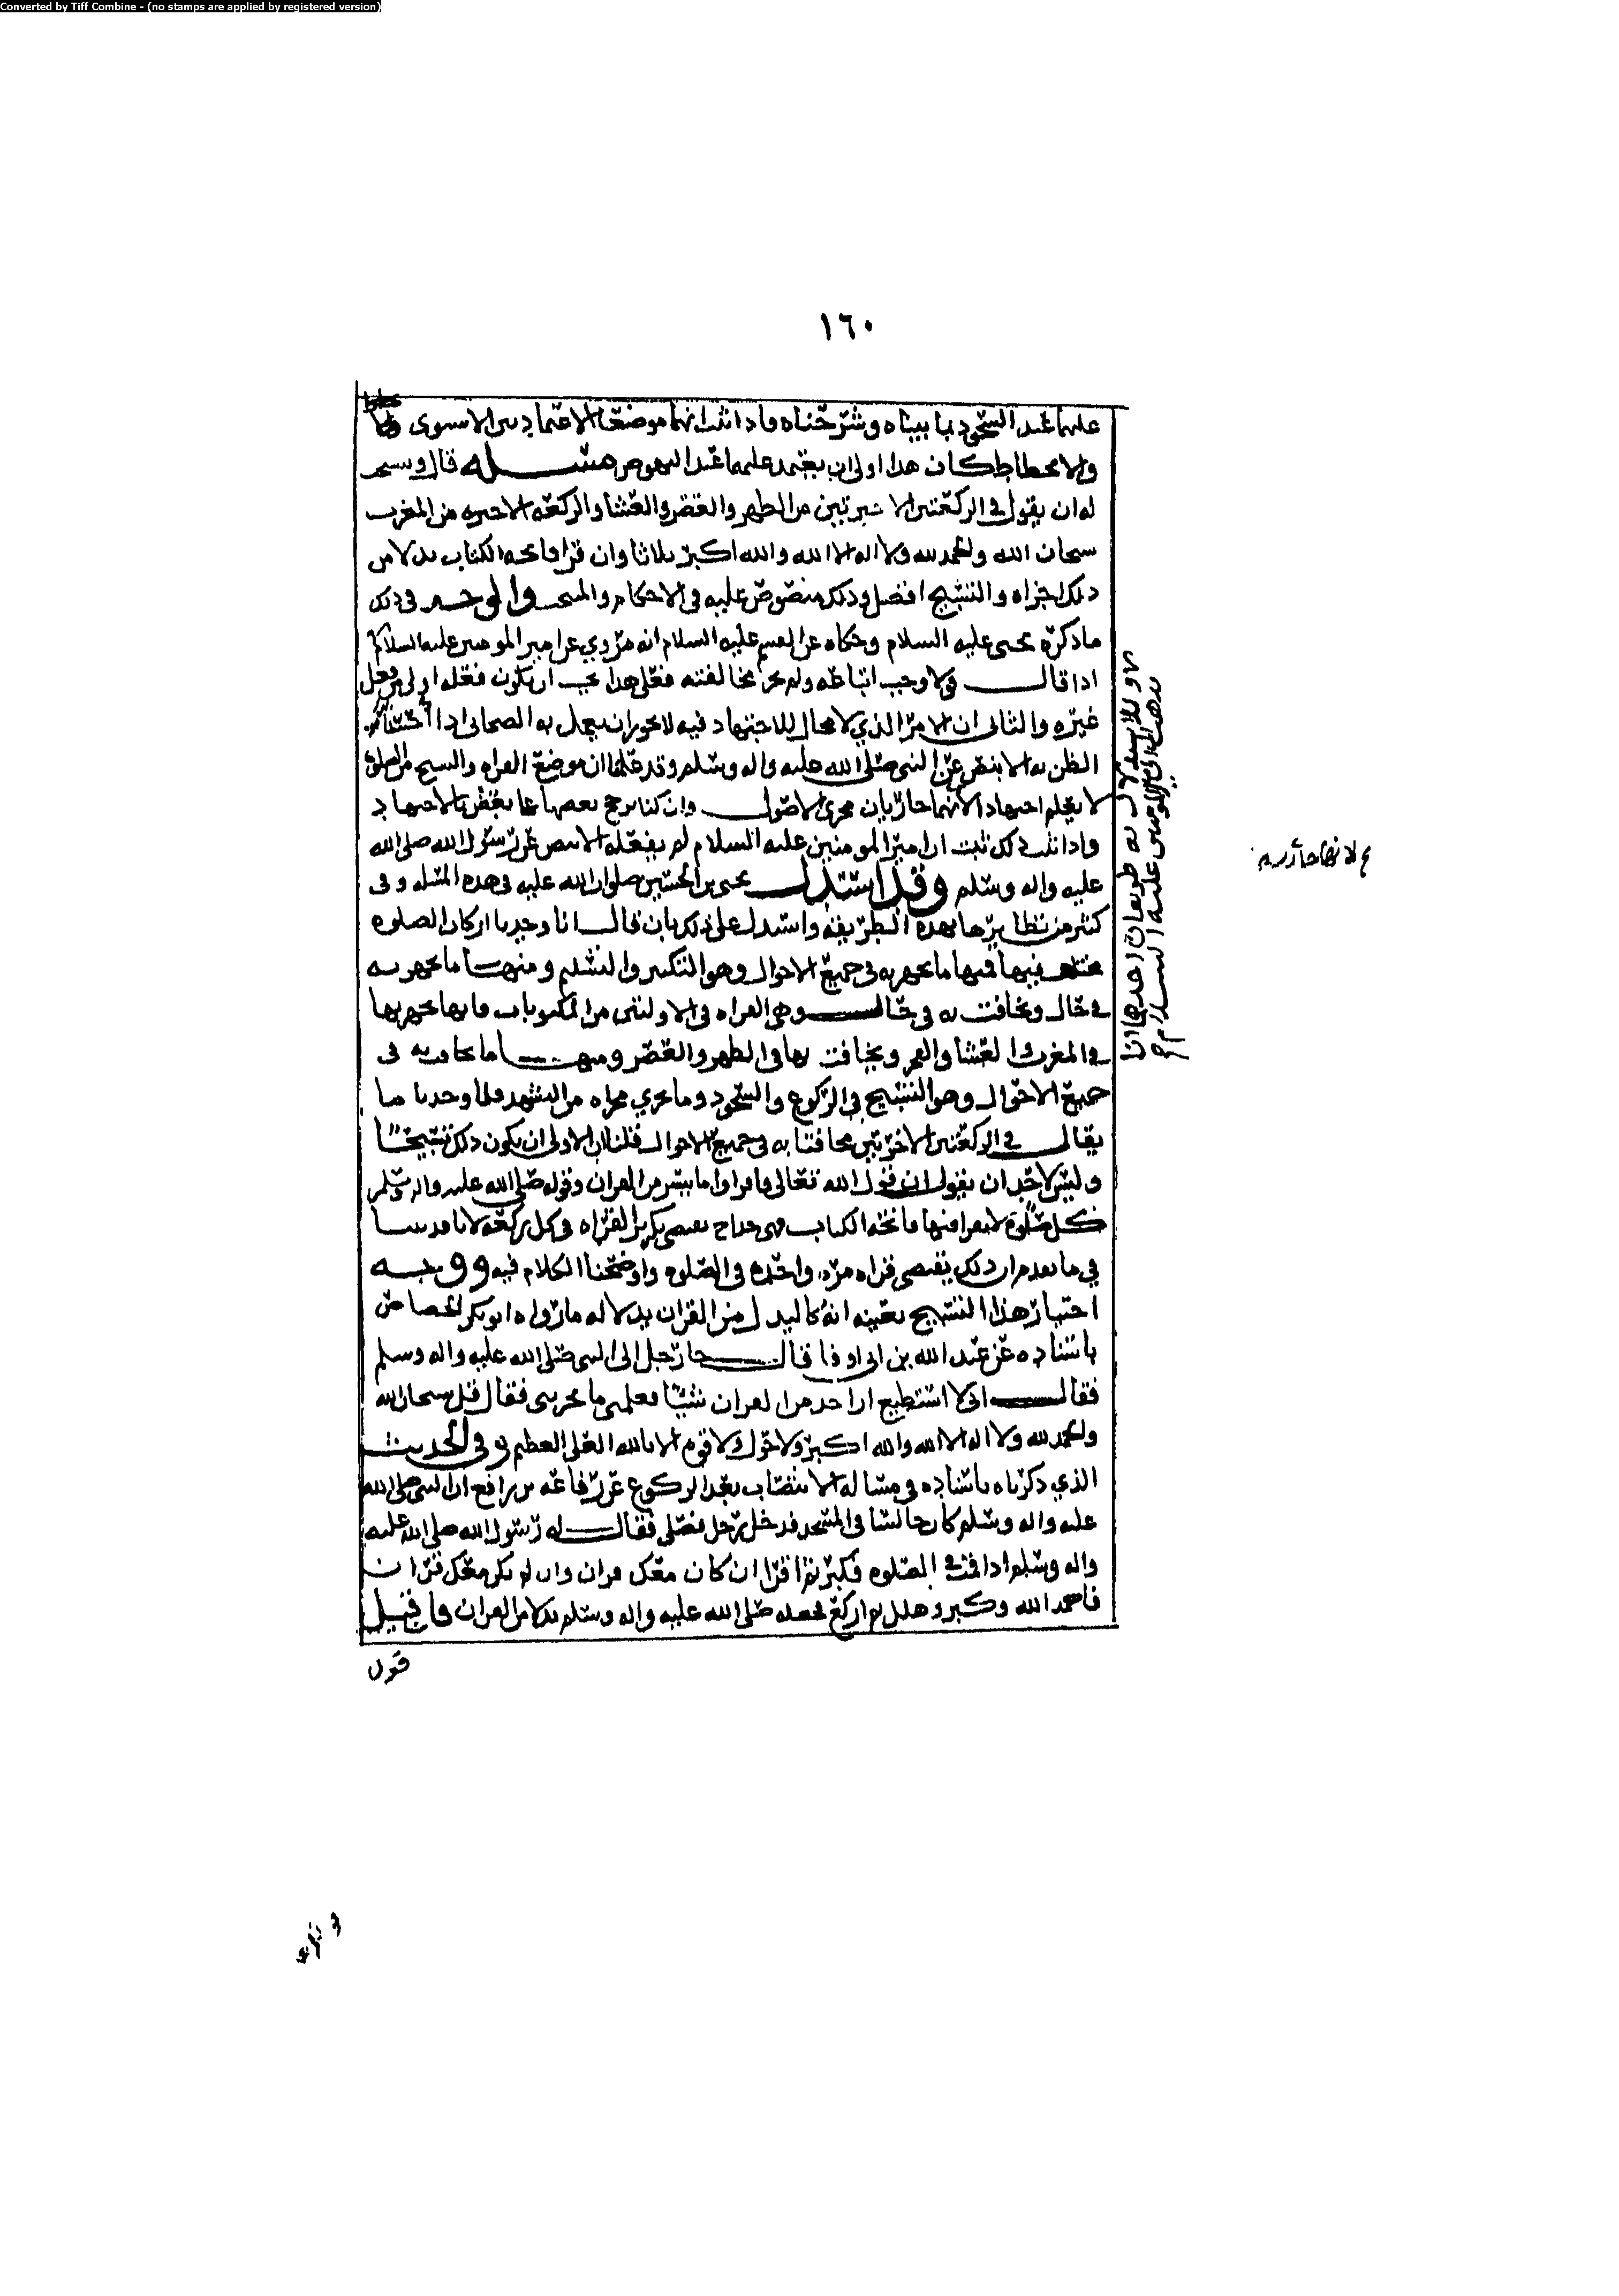 Converted by Tiff Combine - (no stamps are applied by registered version)
١٦٠
عليهما عند السجود بما بيناه وشرحناه فاذا ثبت انهما موضعا الاعتماد الاستوى
والانحطاط كان هذا اولى ان يعتمد عليهما عند النهوض مسئله قال ويستحب
له ان يقول في الركعتين الاخيرتين من الظهر والعصر والعشا والركعة الاخيرة من المغرب
سبحان الله والحمد لله ولا اله الا الله والله اكبر ثلاثا وان قرا فاتحة الكتاب بدلا من
ذلك اجزاه والتسبيح افضل وذلك منصوص عليه في الاحكام والمنتخب والوجه في ذلك
ما ذكره يحيى عليه السلام وحكاه عن القسم عليه السلام انه مروي عن امير المومنين عليه السلام
اذا قال قولا وجب اتباعه ولم يجز مخالفته فعلى هذا يجب ان يكون فعله اولى من فعل
غيره والثاني ان الامر الذي لا مجال للاجتهاد فيه لا يجوز ان يعمل به الصحابي اذا احسنا
الظن به الا بنص عن النبي صلى الله عليه واله وسلم وقد علمنا ان موضع القراه والتسبيح من الصلوة
لا يعلم اجتهادا لانهما جاريان مجرى الاصول وان كنا نرجح بعضها على بعض بالاجتهاد
واذا ثبت ذلك ثبت ان امير المومنين عليه السلام لم يفعله الا بنص عن رسول الله صلى الله
عليه واله وسلم وقد استدل يحيى بن الحسين صلوات الله عليه في هذه المسله وفي
كثير من نظايرها بهذه الطريقة واستدل على ذلك بان قال انا وجدنا اركان الصلوه
فيها ما يجهر به في جميع الاحوال وهو التكبير والتسليم ومنها ما يجهر به
في حال ويخافت به في حال وهي القراه في الاولتين من المكتوبات فانها يجهر بها
في المغرب والعشا والفجر ويخافت بها في الظهر والعصر ومنها ما يخافت به في
جميع الاحوال وهو التسبيح في الركوع والسجود وما يجري مجراه من التشهد فلما وجدنا ما
يقال في الركعتين الاخرتين مخافتا به في جميع الاحوال قلنا ان الاولى ان يكون ذلك تسبيحًا
وليس لاحد ان يقول ان قول الله تعالى فاقراوا ما تيسر من القران وقوله صلى الله عليه واله وسلم
كل صلوة لا يقرا فيها فاتحة الكتاب فهي خداج يقتضي تكرير القراه في كل ركعة لانا قد بينا
في ما تقدم ان ذلك يقتضي قراه مرة واحده في الصلوه واوضحنا الكلام فيه ووجه
اختيار هذا التسبيح بعينه انه كالبدل من القران بدلاله ما رواه ابو بكر الجصاص
باسناده عن عبد الله بن ابي اوفا قال جا رجل الى النبي صلى الله عليه واله وسلم
فقال اني لا استطيع ان اخذ من القران شيئا فعلمني ما يجزيني فقال قل سبحان الله
والحمد لله ولا اله الا الله والله اكبر ولا حول ولا قوه الا بالله العلي العظيم وفي الحديث
الذي ذكرناه باسناده في مسالة الانتصاب بعد الركوع عن رفاعه بن رافع ان النبي صلى الله
عليه واله وسلم كان جالسا في المسجد فدخل رجل فصلى فقال له رسول الله صلى الله عليه
واله وسلم اذا قمت في الصلوه فكبر ثم اقرا ان كان معك قران وان لم يكن معك قران
فاحمد الله وكبر وهلل ثم اركع فجعله صلى الله عليه واله وسلم بدلا من القران فان قيل
قول